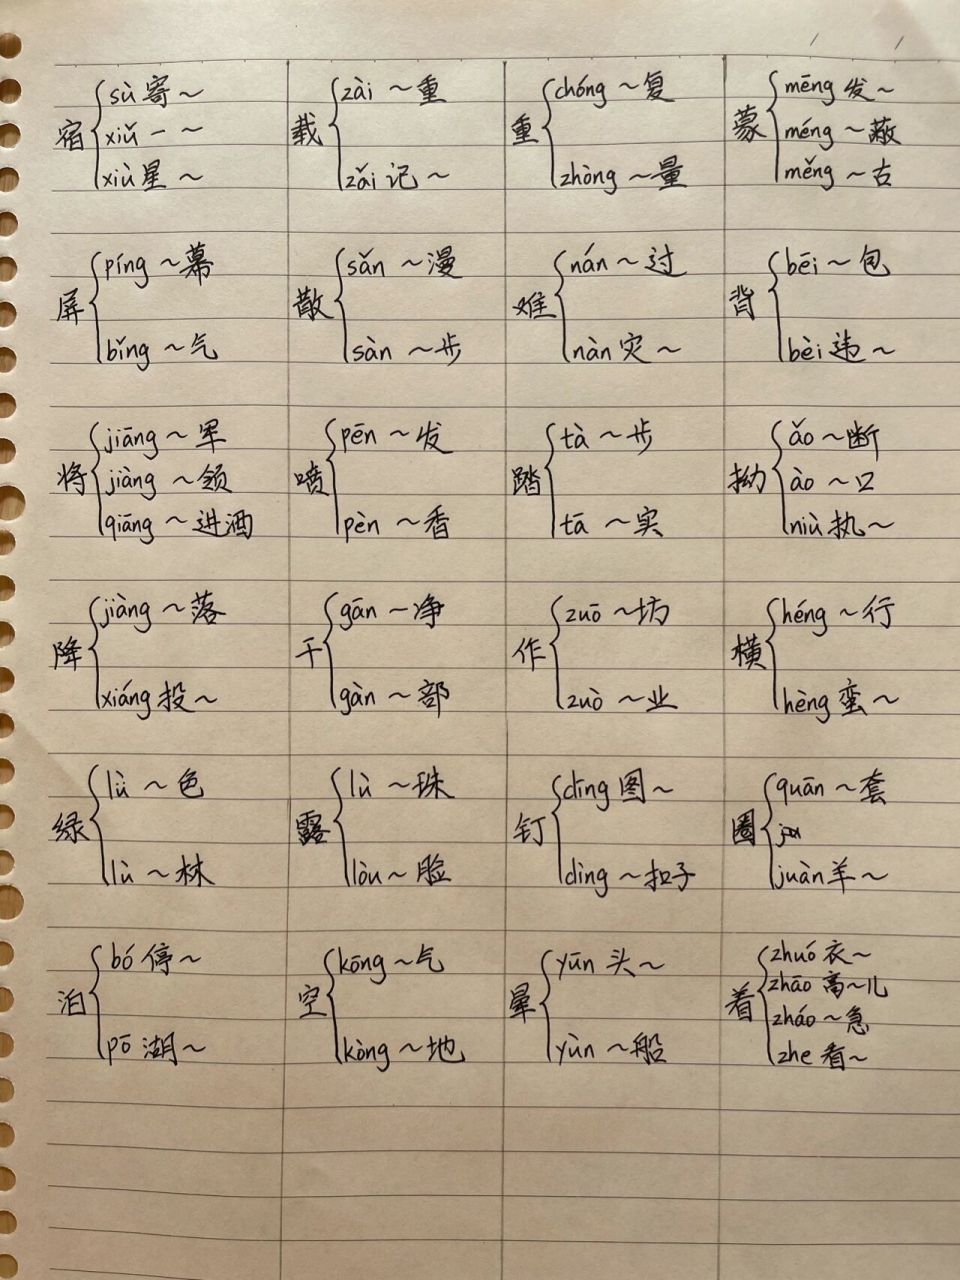 宿 sù 寄～
xiǔ 一～
xiù 星～
载 zài ～重
zǎi 记～
重 chóng ～复
zhòng ～量
蒙 mēng 发～
méng ～蔽
měng ～古
屏 píng ～幕
bǐng ～气
散 sǎn ～漫
sàn ～步
难 nán ～过
nàn 灾～
背 bēi ～包
bèi 违～
将 jiāng ～军
jiàng ～领
qiāng ～进酒
喷 pēn ～发
pèn ～香
踏 tà ～步
tā ～实
拗 ǎo ～断
ào ～口
niù 执～
降 jiàng ～落
xiáng 投～
干 gān ～净
gàn ～部
作 zuō ～坊
zuò ～业
横 héng ～行
hèng 蛮～
绿 lǜ ～色
lù ～林
露 lù ～珠
lòu ～脸
钉 dīng 图～
dìng ～扣子
圈 quān ～套
juàn 羊～
泊 bó 停～
pō 湖～
空 kōng ～气
kòng ～地
晕 yūn 头～
yùn ～船
着 zhuó 衣～
zhāo 高～儿
zháo ～急
zhe 看～